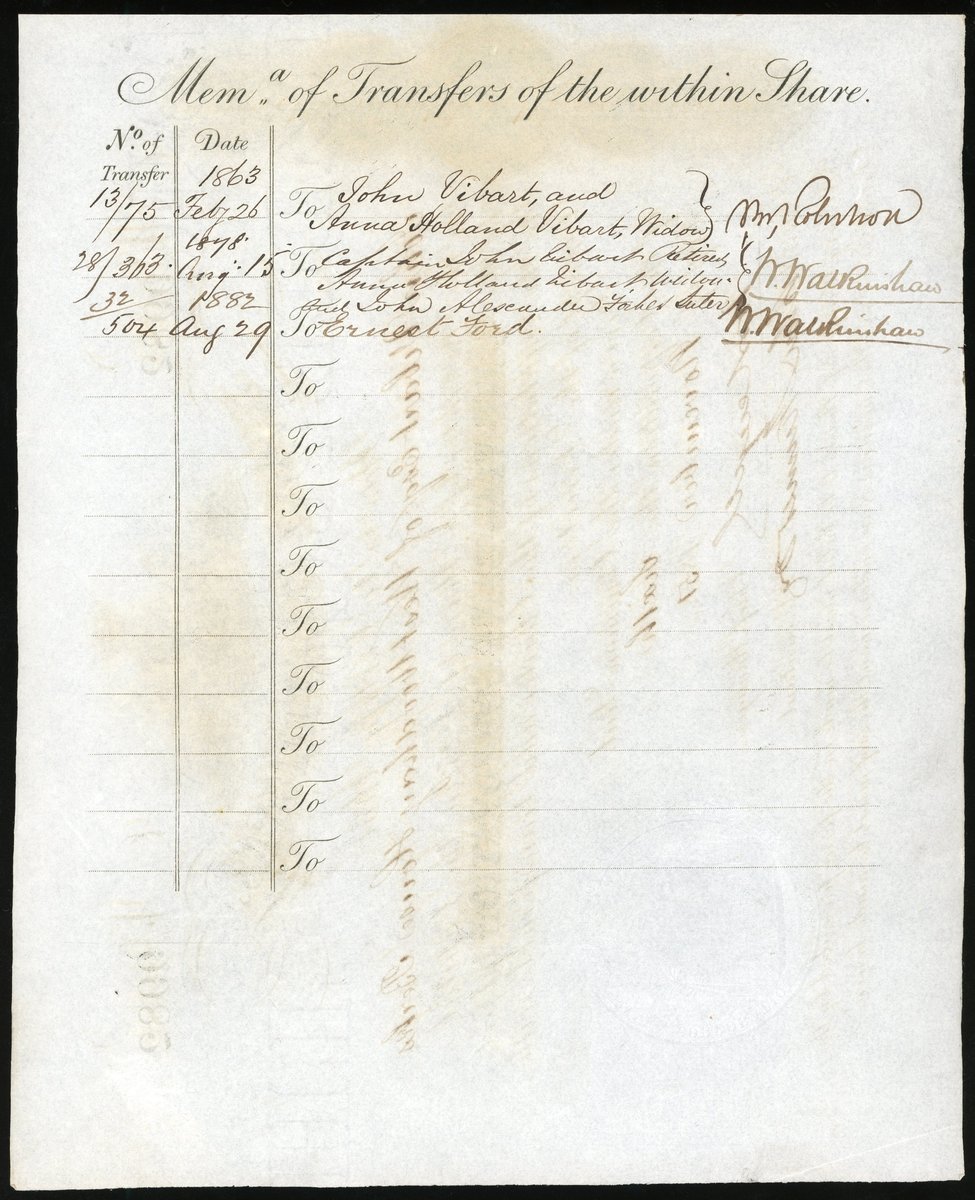 Mem.a of Transfers of the within Share.
No. of Transfer
Date
1863
13/75 Feby 26 To John Vibart, and
Anna Holland Vibart, Widow
1878
28/363. Augt. 15 To Captain John Vibart Retired
Anna Holland Vibart Widow
32 1882 and John Alexander
504 Aug 29 To Ernest Ford.
W. Walkinshaw
W. Walkinshaw
To
To
To
To
To
To
To
To
To